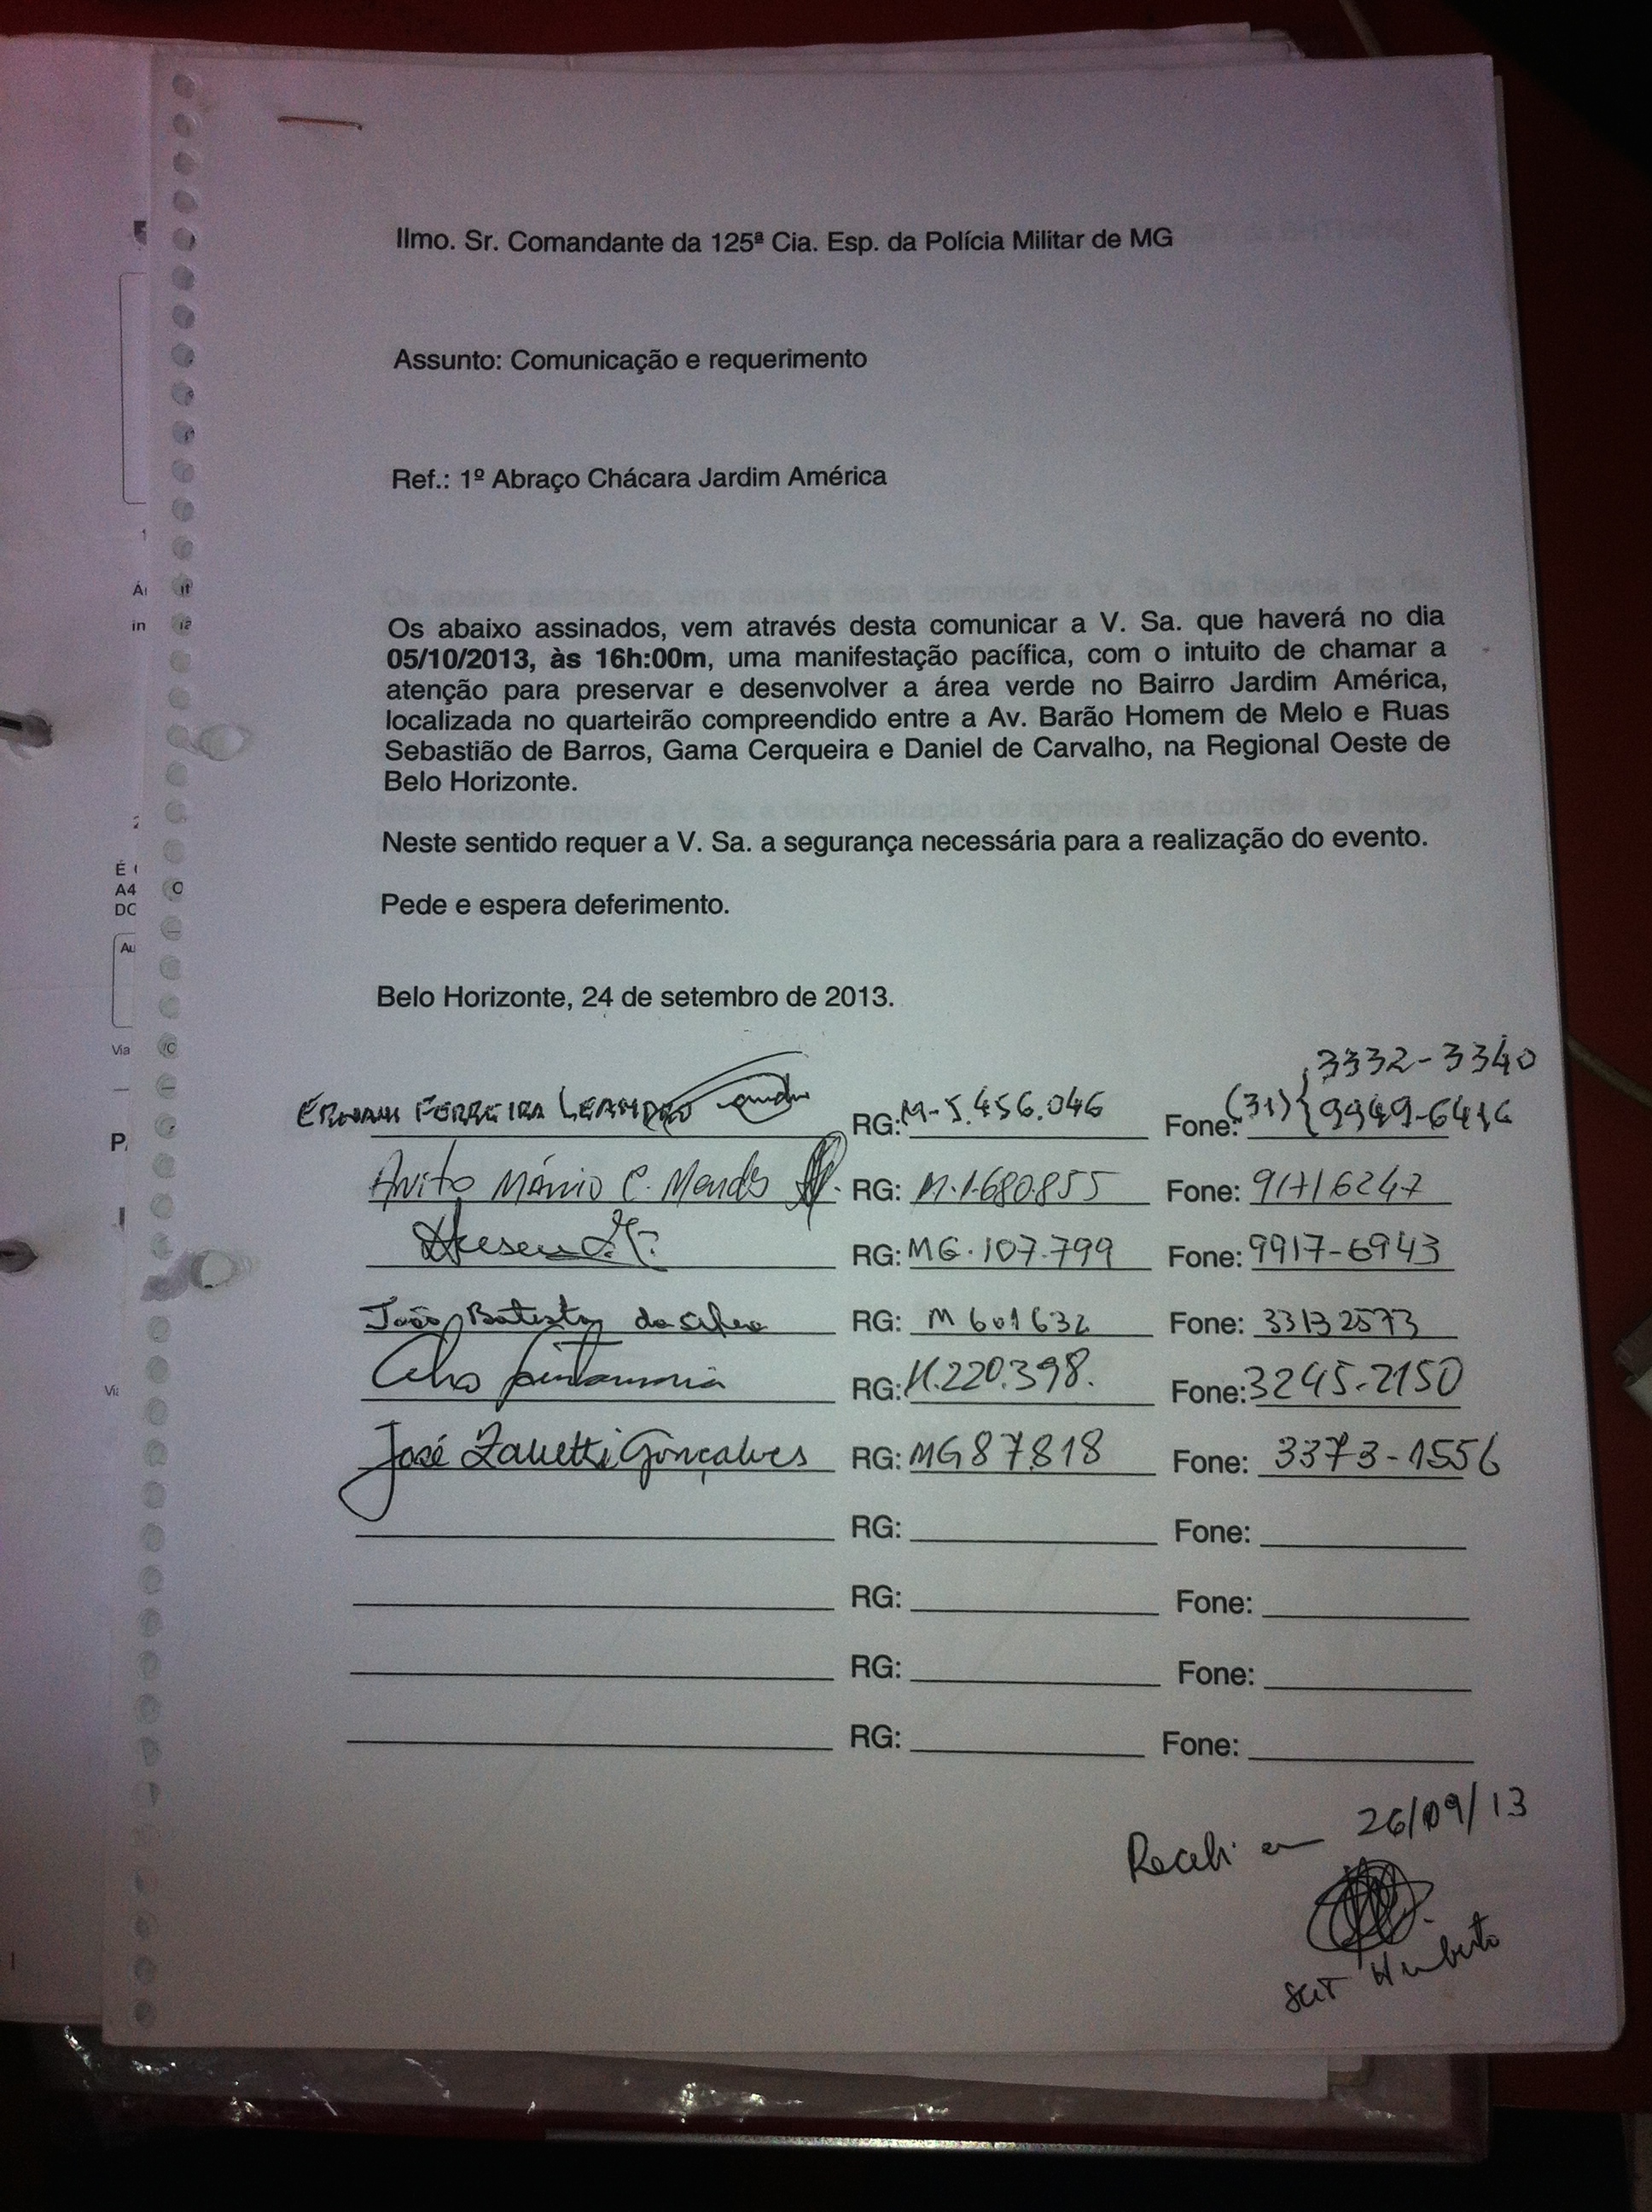 Ilmo. Sr. Comandante da 125ª Cia. Esp. da Polícia Militar de MG
Assunto: Comunicação e requerimento
Ref.: 1º Abraço Chácara Jardim América
Os abaixo assinados, vem através desta comunicar a V. Sa. que haverá no dia
05/10/2013, às 16h:00m, uma manifestação pacífica, com o intuito de chamar a
atenção para preservar e desenvolver a área verde no Bairro Jardim América,
localizada no quarteirão compreendido entre a Av. Barão Homem de Melo e Ruas
Sebastião de Barros, Gama Cerqueira e Daniel de Carvalho, na Regional Oeste de
Belo Horizonte.
Neste sentido requer a V. Sa. a segurança necessária para a realização do evento.
Pede e espera deferimento.
Belo Horizonte, 24 de setembro de 2013.
3332-3340
ERNANI FERREIRA LEANDRO RG: M-5.456.046 Fone: (31) 9949-6414
Mário C. Mendes RG: M.1.680.855 Fone: 91716247
RG: MG.107.799 Fone: 9917-6943
João Batista da Silva RG: M 601632 Fone: 33132573
RG: M.220.398. Fone: 3245-2150
José Zanetti Gonçalves RG: MG87818 Fone: 3373-1556
RG: Fone:
RG: Fone:
RG: Fone:
RG: Fone:
Recebi em 26/09/13
SGT Humberto